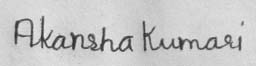 Akansha Kumari